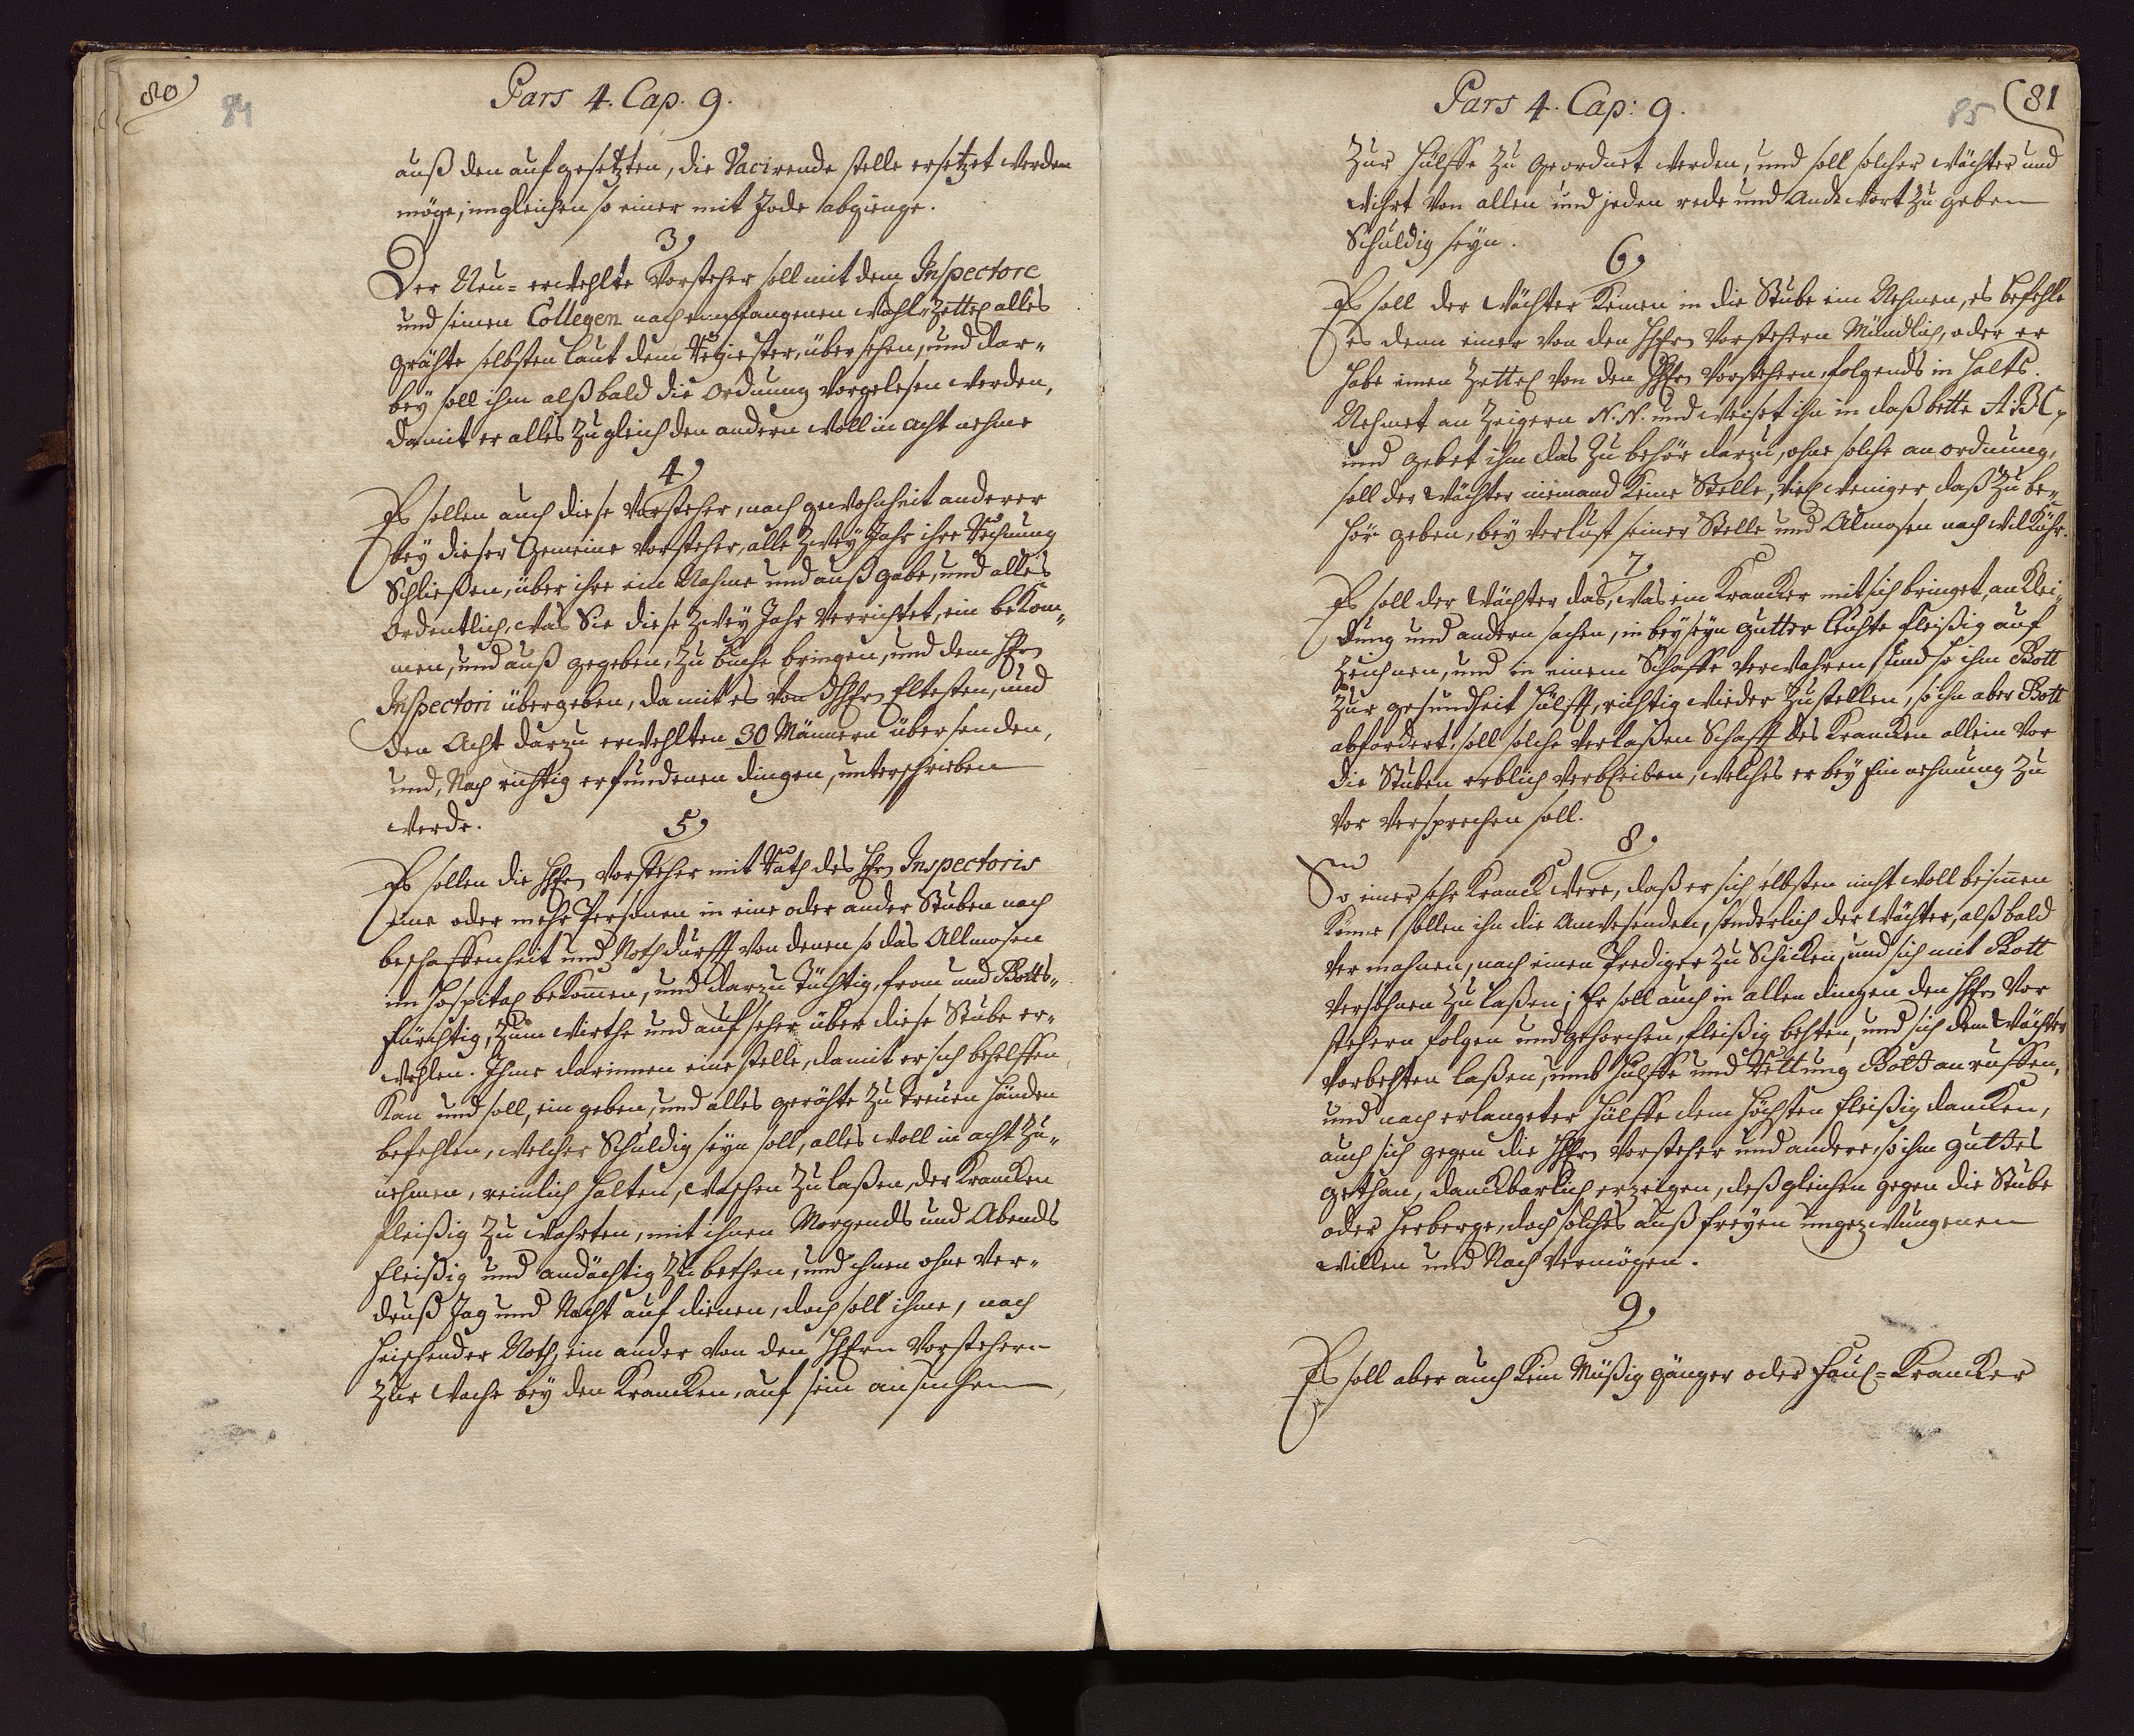 80
84
Pars 4. Cap. 9.
auß den aufgesetzten, die Vacirende stelle ersetzet werden
möge, imgleichen so einer mit Tode abgienge.
3,
Der Neu-erwehlte Vorsteher soll mit dem Inspectore
und seinen Collegen nach empfangenen Wahl-Zettel alles
grähte selbsten laut dem Regiester, übersehen, und dar-
bey soll ihm alßbald die Ordnung vorgelesen werden,
damit er alles zugleich den andern woll in acht nehme
4,
Es sollen auch diese Vorsteher, nach gewohnheit anderer
bey dieser Gemeine Vorsteher, alle Zwey Jahr ihre Rechnung
Schließen, über ihre ein Nahme und auß gabe, und alles
Ordentlich, was Sie diese Zwey Jahr verrichtet, ein bekom-
men, und auß gegeben, zu buche bringen, und dem Hhrn
Inspectori übergeben, damit es von HHrn Eltesten, und
den Acht darzu erwehlten 30 Männern übersenden,
und, Nach richtig erfundenen dingen, unterschrieben
werde.
5,
Es sollen die HHrn Vorsteher mit Rath des Hhrn Inspectoris
eine oder mehr Persohnen in eine oder ander Stuben nach
beschaffenheit und Nothdurfft von denen so das Allmosen
im Hospital bekom̅en, und darzu Tüchtig, from und Gotts-
fürchtig, Zum Wirthe und aufseher über diese Stube er-
wehlen. Ihme darinnen eine stelle, damit er sich behelffen
Kan und soll, ein geben, und alles gerähte zu treuen händen
befehlen, welcher Schuldig seyn soll, alles woll in acht zu-
nehmen, reinlich halten, waschen zu laßen, der Krancken
fleißig zu wahrten, mit ihnen Morgends und Abends
fleißig und andächtig zu bethen, und ihnen ohne Ver-
druß Tag und Nacht auf dienen, doch soll ihme, nach
heischender Noth, ein ander von den HHrn Vorstehern
zur Wache bey den Krancken, auf sein ansuchen,
Pars 4. Cap: 9.
85
81
Zur Hülffe zu geordnet werden, und soll solcher Wächter und
Wihrt von allen und jeden rede und Andtwort zu geben
Schuldig seyn.
6,
Es soll der Wächter Keinen in die Stube ein Nehmen, es befehle
es denn einer von den HHrn Vorstehern Mündlich, oder er
habe einen Zettel von den HHrn Vorstehern, folgends in halts.
Nehmet an Zeigern N. N. und weiset ihn in daß bette A. B. C,
und gebet ihm das Zu behör darzu, ohne solche anordnung,
soll der Wächter niemand Keine Stelle, viel weniger daß Zu be-
hör geben, bey verlust seiner Stelle und Almosen nach wilKühr.
7,
Es soll der Wächter das, was ein Krancker mit sich bringet, an Klei-
dung und andern sachen, in beyseyn gutter Leuhte fleißig auf
Zeichnen, und in einem Schaffe verwahren und so ihm Gott
zur gesundheit hülfft, richtig wieder zustellen, so ihn aber Gott
abfordert, soll solche Verlaßen Schafft des Krancken allein vor
die Stuben erblich verbleiben, welches er bey Ein nehmung zu
vor versprechen soll.
8,
So einer sehr Kranck were, daß er sich selbsten nicht woll besin̅en
Könne sollen ihn die Anwesenden, sonderlich der Wächter, alßbald
ver mahnen, nach einen Prediger zu Schicken, und sich mit Gott
versöhnen zu laßen; Er soll auch in allen dingen den HHrn Vor
stehern folgen und gehorchen, fleißig behten, und sich dem Wächter
vorbehten laßen, umb Hülffe und Rettung Gott anruffen,
und nach erlangeter hülffe dem höchsten fleißig dancken,
auch sich gegen die HHrn Vorsteher und andere, so ihm guttes
gethan, danckbarlich erzeigen, deßgleichen gegen die Stube
oder Herberge, doch solches auß freyen ungezwungenen
willen und Nach Vermögen.
9,
Es soll aber auch Kein Müßig gänger oder faul-Krancker